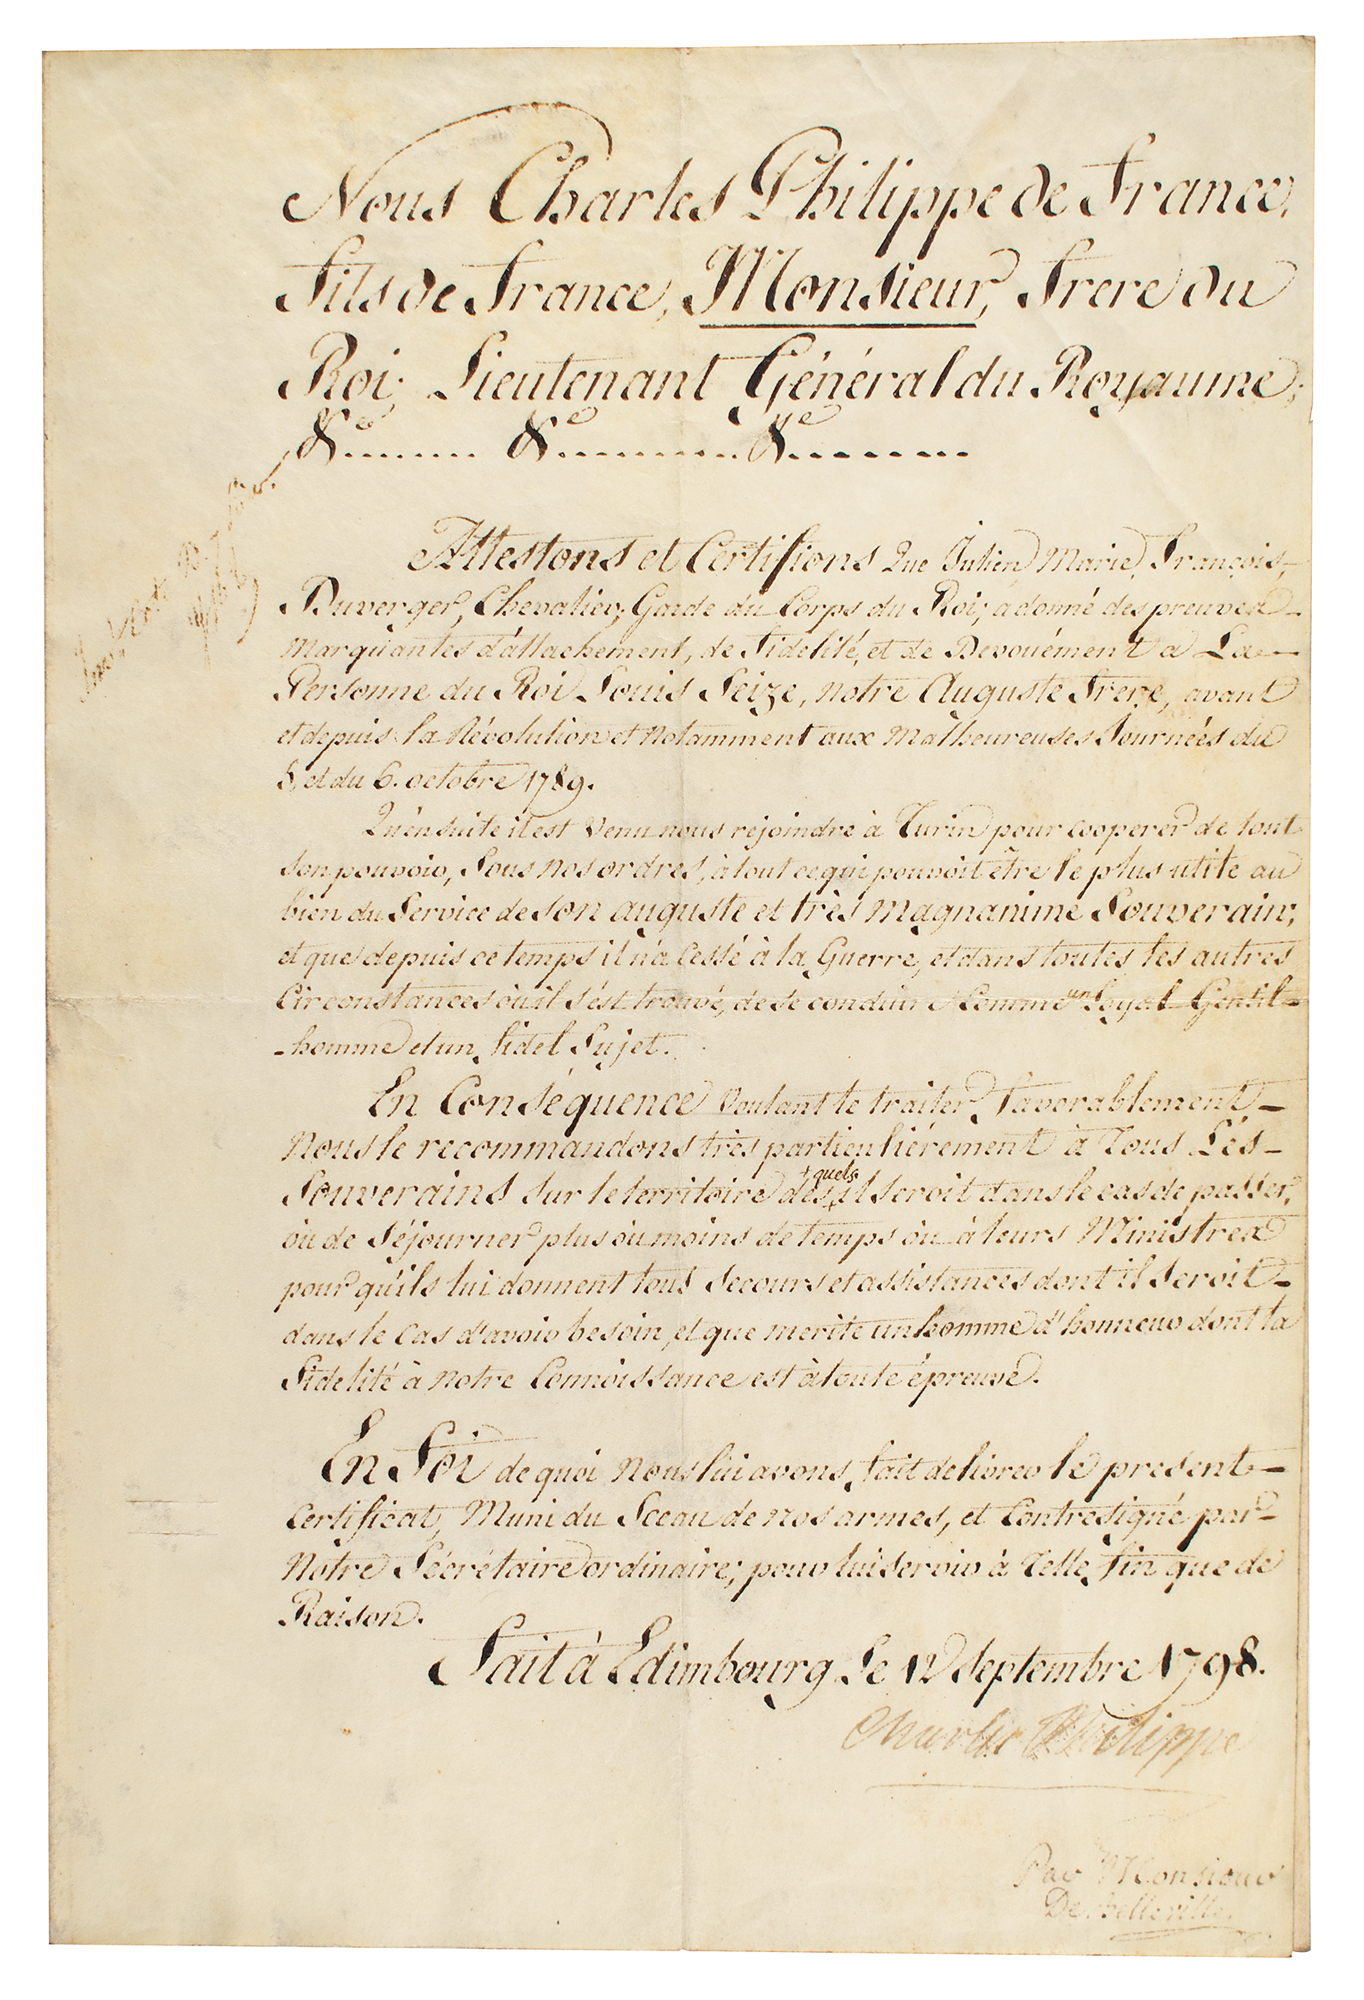 Nous Charles Philippe de France,
Fils de France, Monsieur, Frere du
Roi, Lieutenant Général du Royaume,
&ce....... &ce......... &ce.......
Attestons et Certifions Que Julien, Marie, François,
Duverger, Chevalier, Garde du Corps du Roi, a donné des preuves
Marquantes d'attachement, de Fidelité, et de Devouément a La
Personne du Roi Louis Seize, notre Auguste Frere, avant
et depuis la Révolution et Notamment aux Malheureuses Journées du
5, et du 6. octobre 1789.
Qu'ensuite il est venu nous rejoindre à Turin pour cooperer de tout
son pouvoir, sous nos ordres, à tout ce qui pouvoit être le plus utile au
bien du Service de son auguste et très magnanime Souverain;
et que depuis ce temps il n'a cessé à la Guerre, et dans toutes les autres
Circonstances où il s'est trouvé, de se conduire Comme un loyal Gentil-
-homme et un fidel Sujet.
En Conséquence Voulant le traiter favorablement
Nous le recommandons très particuliérement à Tous Les
+quels
Souverains sur le territoire des+ il seroit dans le cas de passer,
ou de Séjourner plus ou moins de temps ou à leurs Ministres
pour qu'ils lui donnent tous secours et assistances dont il seroit
dans le Cas d'avoir besoin, et que merite un homme d'honneur dont la
Fidelité à notre Connoissance est à toute épreuve.
En Foi de quoi Nous lui avons fait delivrer le present
Certificat, Muni du Sceau de nos armes, et Contresigné par
Notre Sécrétaire ordinaire; pour lui servir à Telle fin que de
Raison.
Fait à Edimbourg Le 12 Septembre 1798.
Charles Philippe
Par Monsieur
De Belleville